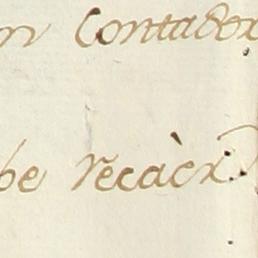 n Contador
be recàer